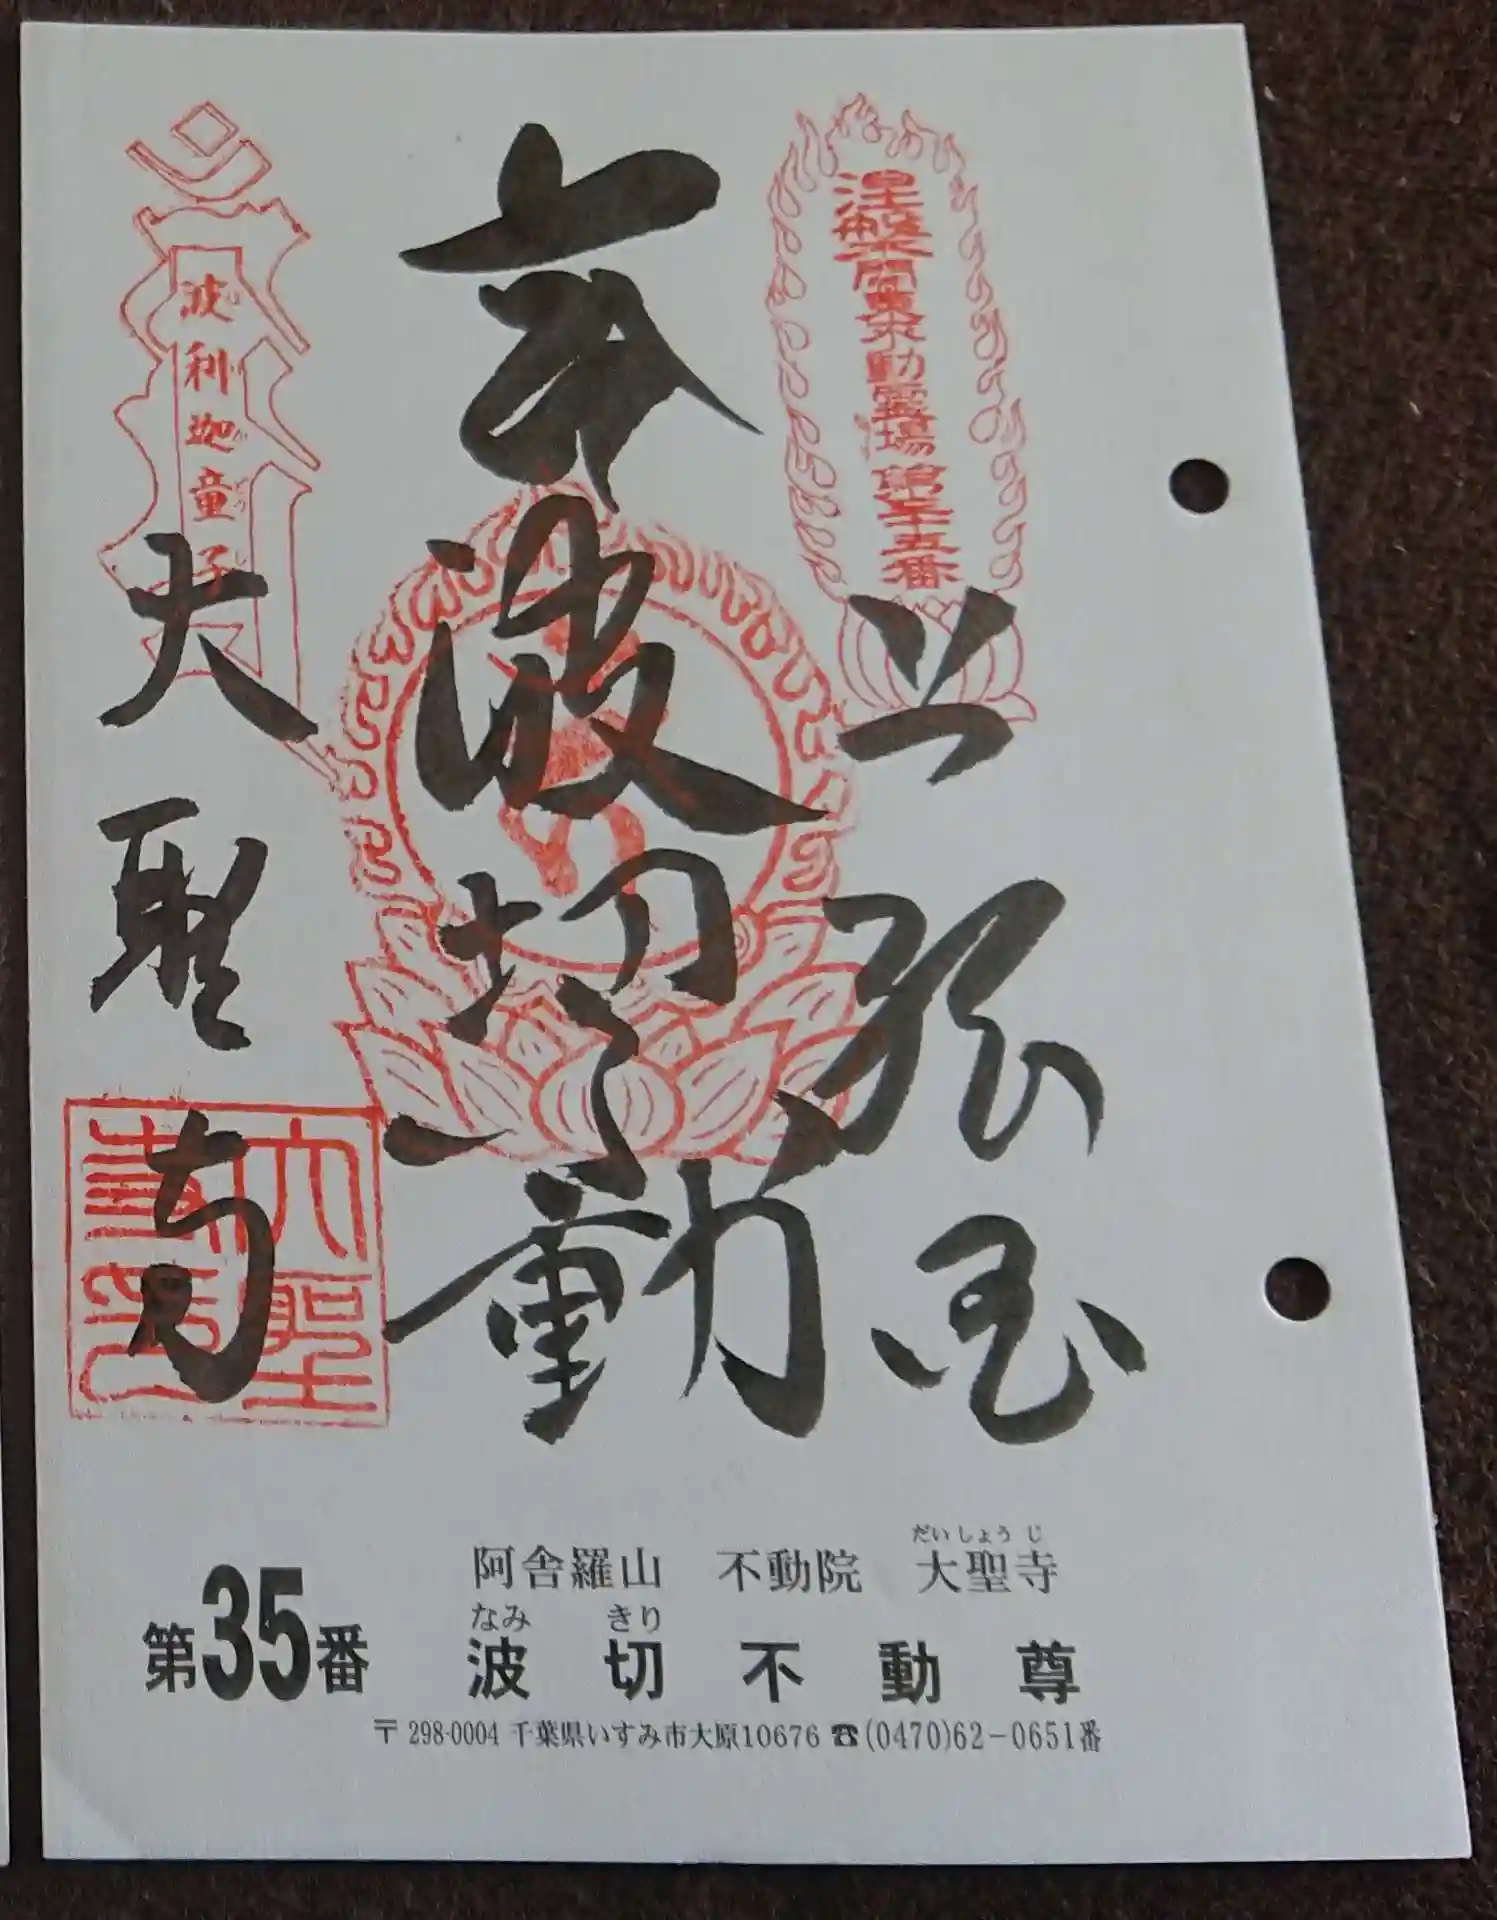 涅槃 関東不動霊場 第三十五番
上総国
本 波切不動
波利迦童子
大聖寺
大聖寺印
だいしょうじ
阿舎羅山 不動院 大聖寺
なみ きり
第35番 波切不動尊
〒298-0004 千葉県いすみ市大原10676 ☎(0470)62-0651番